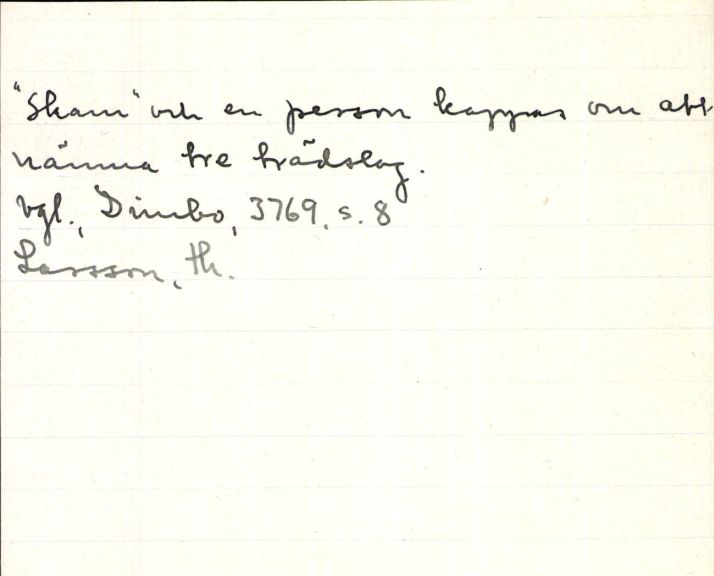 "Skam" och en person kappas om att
nämna tre trädslag.
Vgl., Dimbo, 3769, s. 8
Larsson, Th.